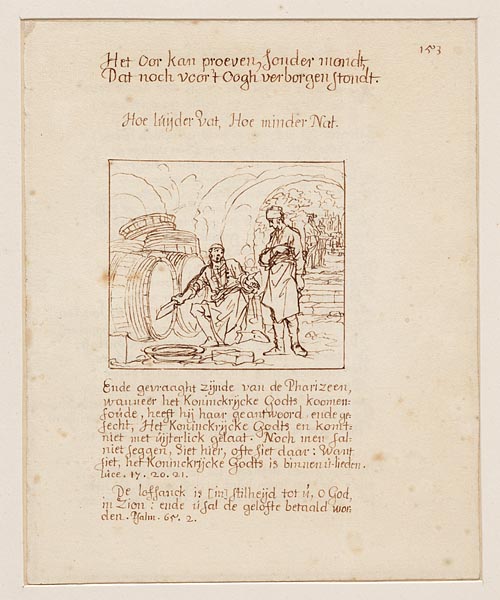 153
Het Oor kan proeven, sonder mondt,
Dat noch voor 't Oogh verborgen stondt.
Hoe luijder Vat, Hoe minder Nat.
Ende gevraaght zijnde van de Pharizeen,
wanneer het Koninckrijcke Godts, koomen=
soude, heeft hij haar geantwoord ende ge=
secht, Het Koninckrijcke Godts en komt=
niet met uijterlick gelaat. Noch men sal=
niet seggen, Siet hier, ofte siet daar: Want
siet, het Koninckrijcke Godts is binnen u-lieden.
Luce. 17. 20. 21.
De lofsanck is [in] stilheijd tot u, O God,
in Zion: ende u sal de gelofte betaald wor=
den. Psalm. 65. 2.